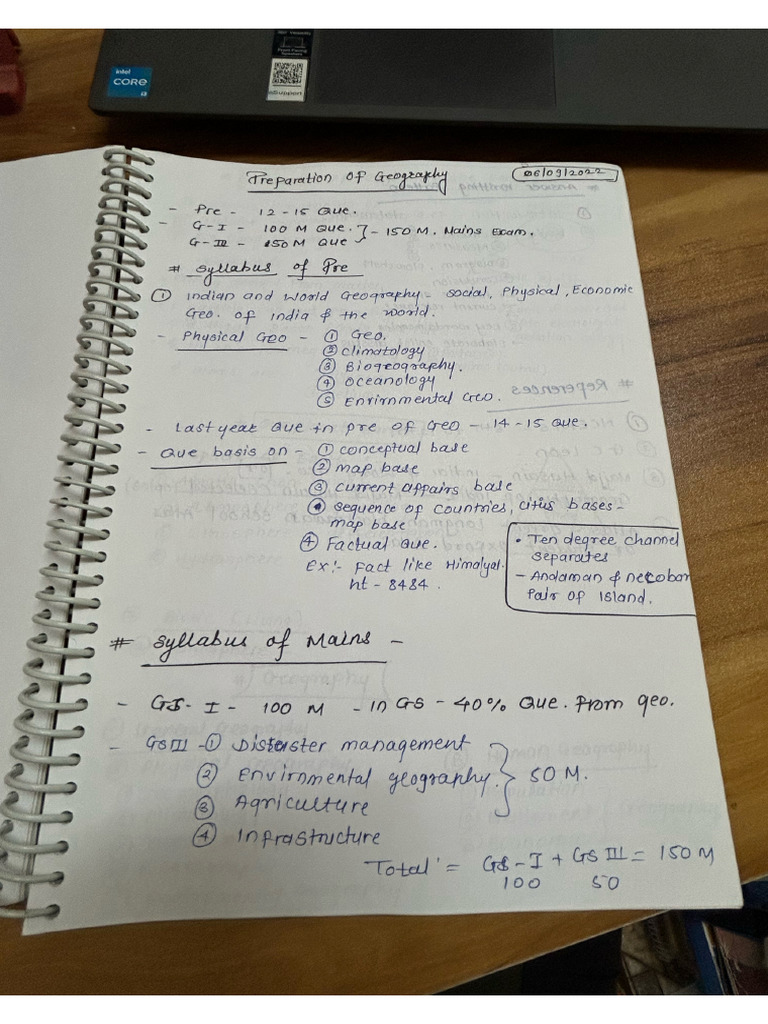 intel
CORE
i3
Support
Preparation of Geography
06/09/2022
- Pre - 12-15 Que.
- G-I - 100 M Que. } - 150 M. Mains Exam.
G-III - 50 M Que
# Syllabus of Pre
① Indian and World Geography - Social, Physical, Economic
Geo. of India & the World.
- Physical Geo - ① Geo.
② Climatology
③ Biogeography.
④ Oceanology
⑤ Envirnmental Geo.
- Last year Que in pre of Geo - 14-15 Que.
- Que basis on - ① conceptual base
② map base
③ current affairs base
• Sequence of countries, citius bases -
map base
④ Factual Que.
Ex:- Fact like Himalyal.
ht - 8484.
• Ten degree channel
separates
- Andaman & necobar
Pair of Island.
# Syllabus of Mains -
- GS-I - 100 M - in GS - 40% Que. From geo.
- GSIII - ① Disaster management
② Envirnmental geography. } 50 M.
③ Agriculture
④ Infrastructure
Total = GS-I + GS III = 150 M
100 50